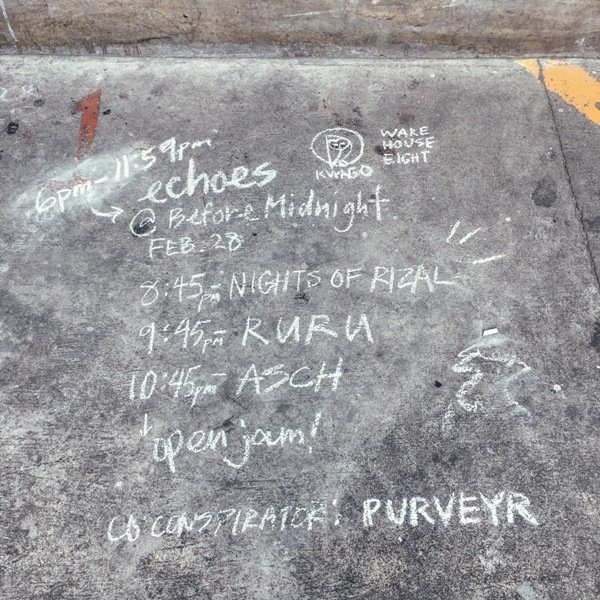 1
6pm - 11:59pm
KWAGO
WARE
HOUSE
EIGHT
echoes
@ Before Midnight
FEB. 28
8:45pm - NIGHTS OF RIZAL
9:45pm - RURU
10:45pm - ASCH
open jam!
CO-CONSPIRATOR: PURVEYR